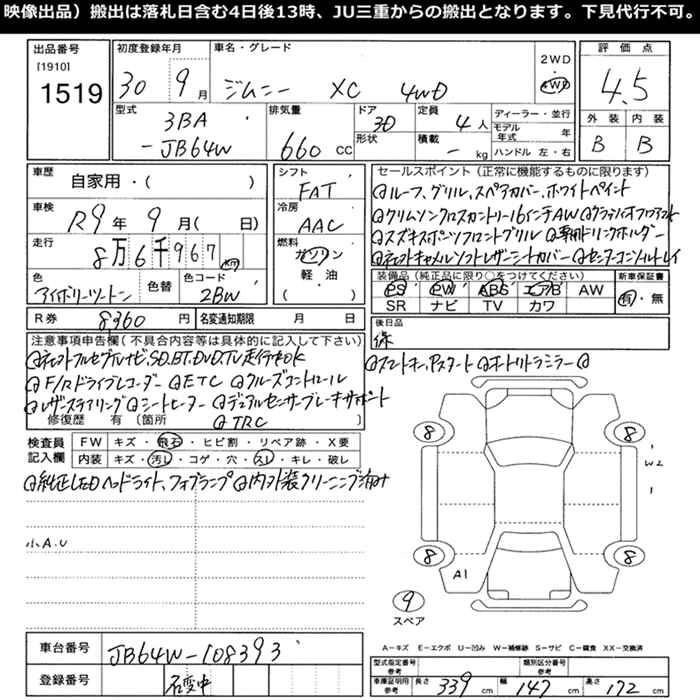 映像出品）搬出は落札日含む4日後13時、JU三重からの搬出となります。下見代行不可。
出品番号
[1910]
1519
初度登録年月
30年 9月
車名・グレード
ジムニー XC 4WD
2WD
4WD
評価点
4.5
外装 内装
B B
型式
3BA
-JB64W
排気量
660 cc
ドア
3D
形状
定員
4人
積載
- kg
ディーラー・並行
モデル年式 年
ハンドル 左・右
車歴
自家用・( )
車検
R9年 9月( 日)
走行
8万6千967 km
色
アイボリーツートン
色替
色コード
2BW
シフト
FAT
冷房
AAC
燃料
ガソリン
軽油
( ・ )
セールスポイント（正常に機能するものに限ります）
ルーフ、グリル、スペアカバー、ホワイトペイント
クリムソンクロスカントリー16インチAW
スズキスポーツフロントグリル 専用ドリンクホルダー
ネオキャメルソフトレザーシートカバー センターコンソールトレイ
装備品（純正品に限り○をつけてください）
PS PW ABS エアB AW
SR ナビ TV カワ
新車保証書
有・無
R券 8360円
名変通知期限 月 日
後日品
保
注意事項申告欄（不具合内容等は具体的に記入して下さい）
フルセグナビ、SD.BT.DVD.TV走行時OK
F/Rドライブレコーダー ETC クルーズコントロール
レザーステアリング シートヒーター デュアルセンサーブレーキサポート
修復歴 有 〔箇所 〕 TRC
スマートキー、Pスタート オートリトラミラー
検査員記入欄
FW キズ・飛石・ヒビ割・リペア跡・X要
内装 キズ・汚レ・コゲ・穴・スレ・キレ・破レ
純正LEDヘッドライト、フォグランプ 内外装クリーニング済み
小A.U
8
8
8
8
W2
A1
9
スペア
A－キズ E－エクボ U－凹み W－補修跡 S－サビ C－腐食 XX－交換済
車台番号 JB64W-108393
登録番号 名変中
型式指定番号 参考
類別区分番号 参考
車庫証明用 参考
長さ 339 cm 幅 147 cm 高さ 172 cm